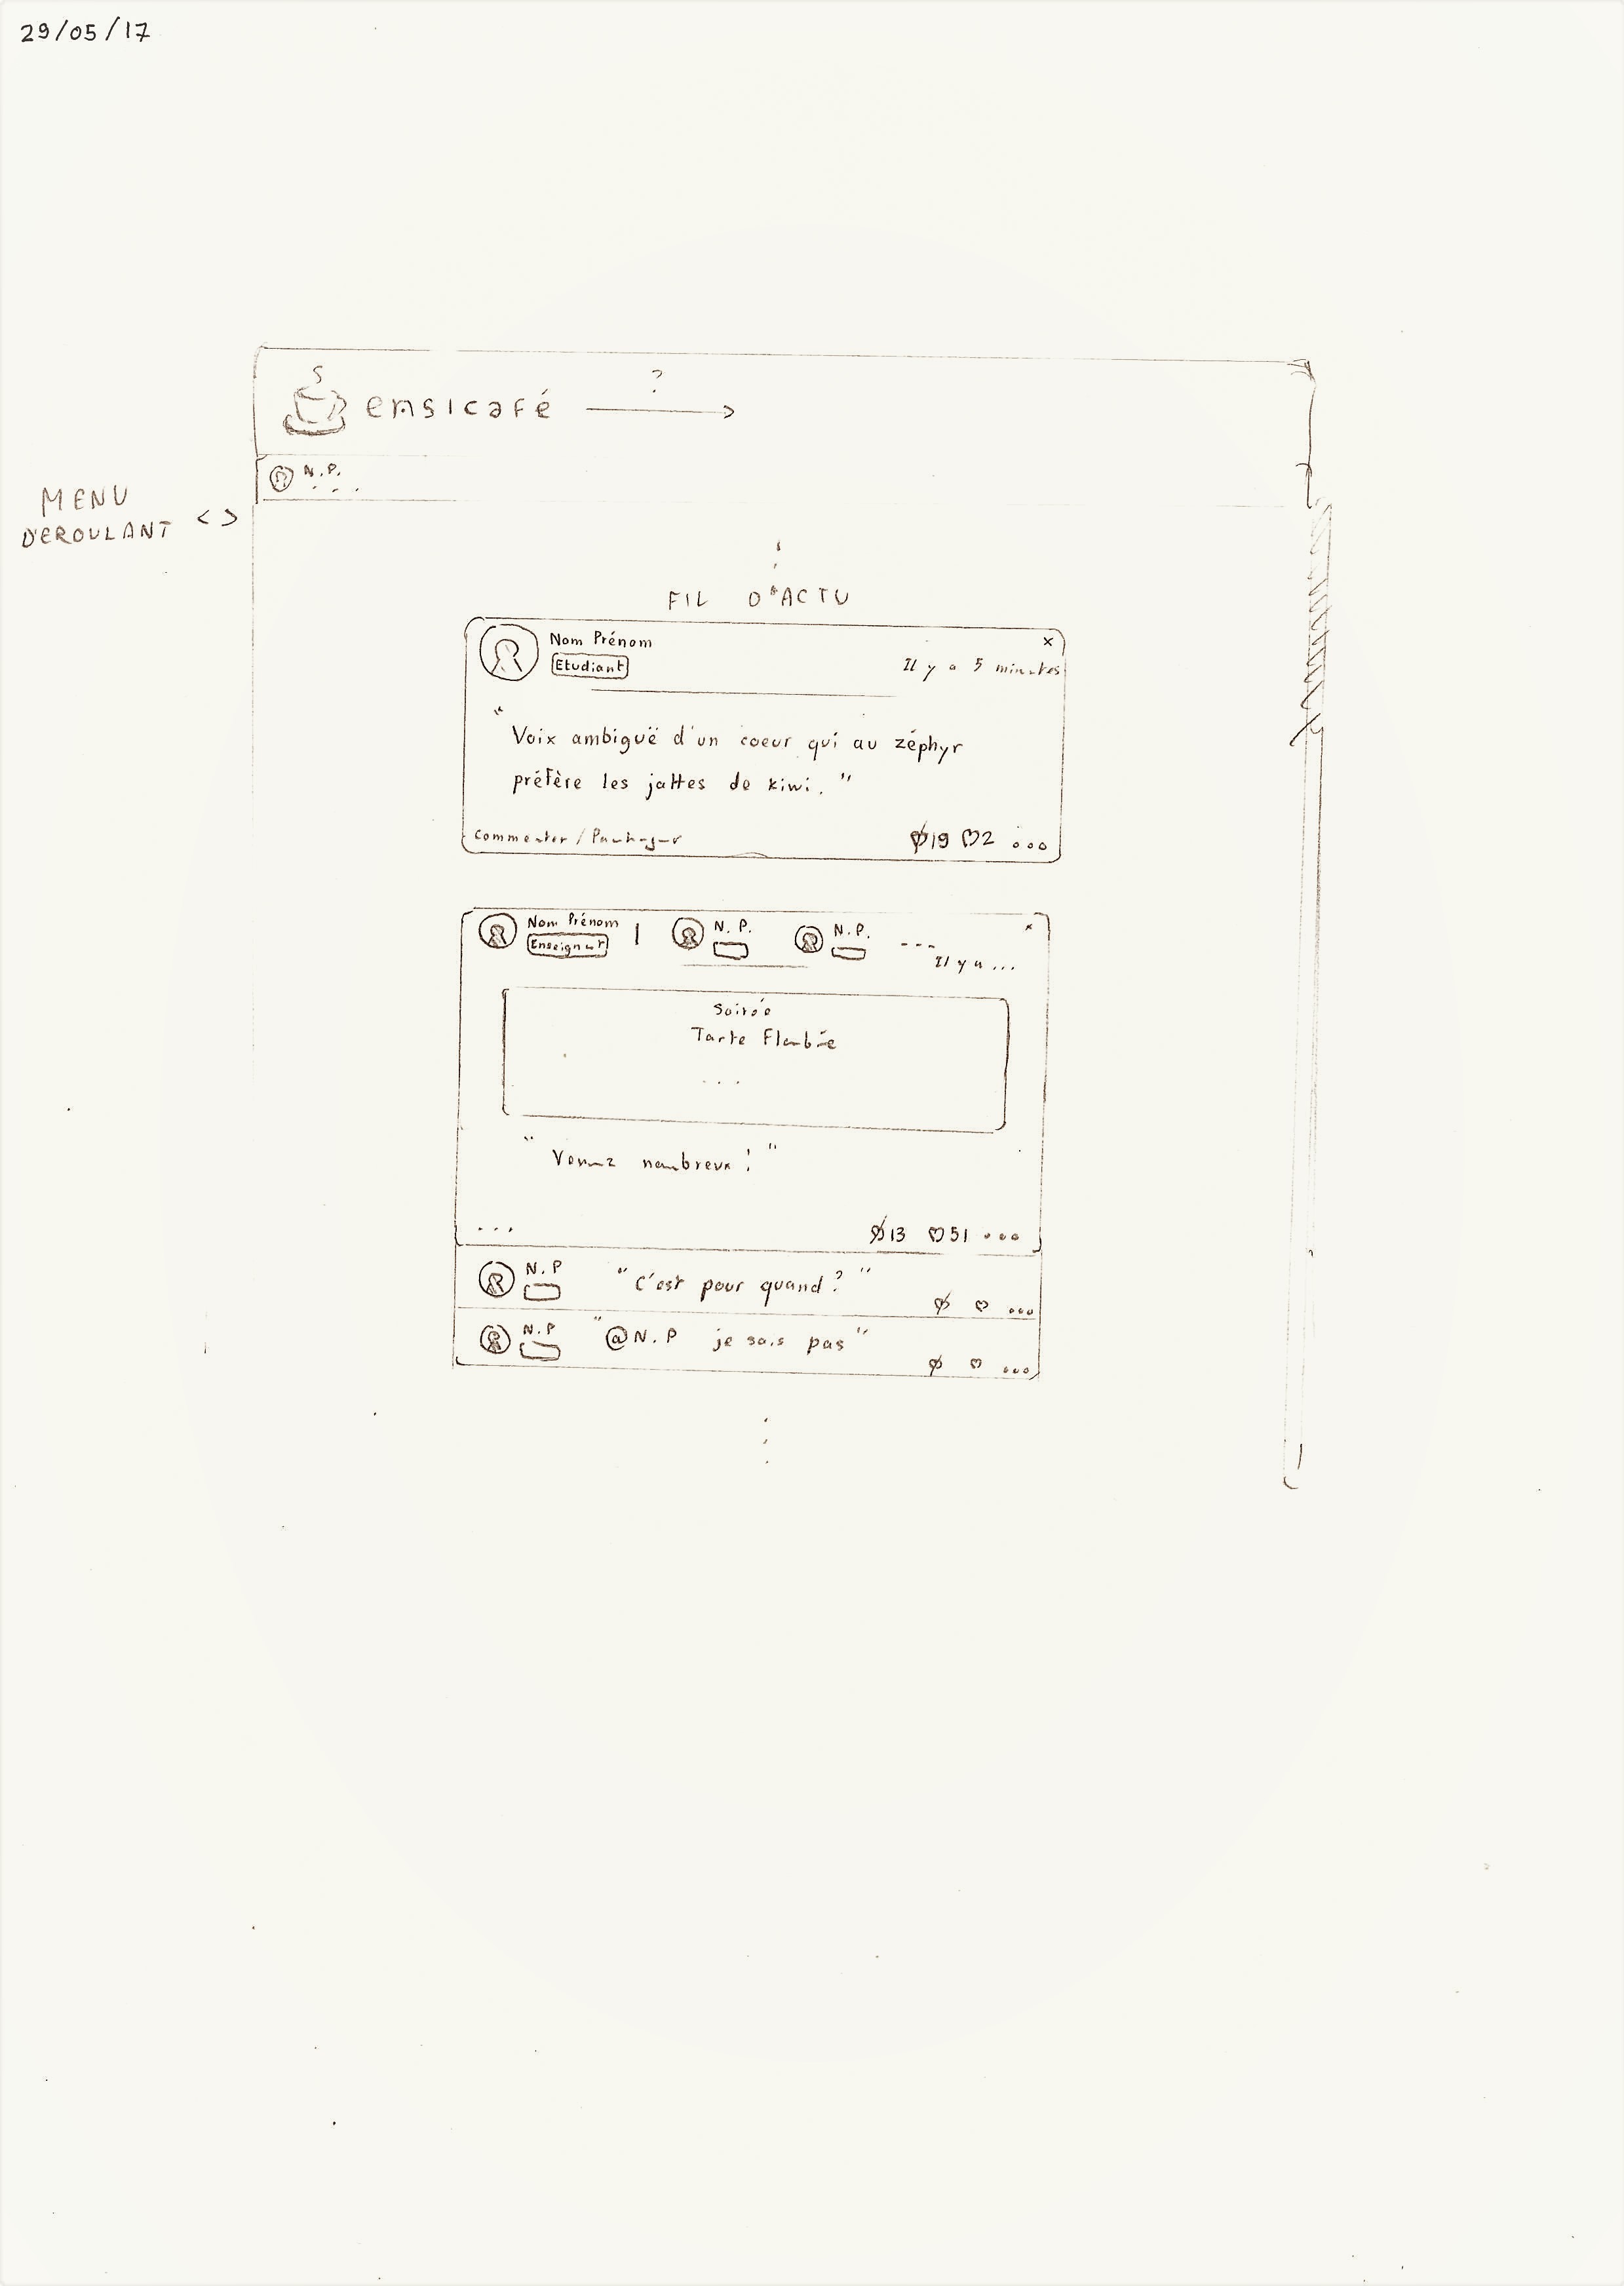 29/05/17
?
ensicafé
N.P.
MENU
DÉROULANT <>
FIL D'ACTU
Nom Prénom
x
Etudiant
Il y a 5 minutes
"
Voix ambiguë d'un coeur qui au zéphyr
préfère les jattes de kiwi. "
Commenter / Partager
19 2 ...
Nom Prénom | N. P. N.P. ---
x
Il y a ...
Soirée
Tarte Flambée
...
" Venez nombreux ! "
... 13 51 ...
N.P " C'est pour quand ? "
...
N.P "@N.P je sais pas"
...